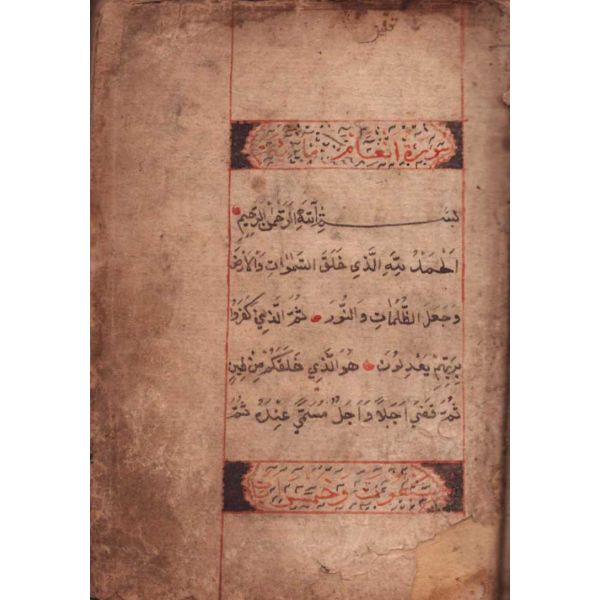 سورة انعام مائة
بسم الله الرحمن الرحيم
الحمد لله الذي خلق السموات والارض
وجعل الظلمات والنور ثم الذين كفروا
بربهم يعدلون هو الذي خلقكم من طين
ثم قضى اجلا واجل مسمى عنده ثم
ستون وخمس ايات